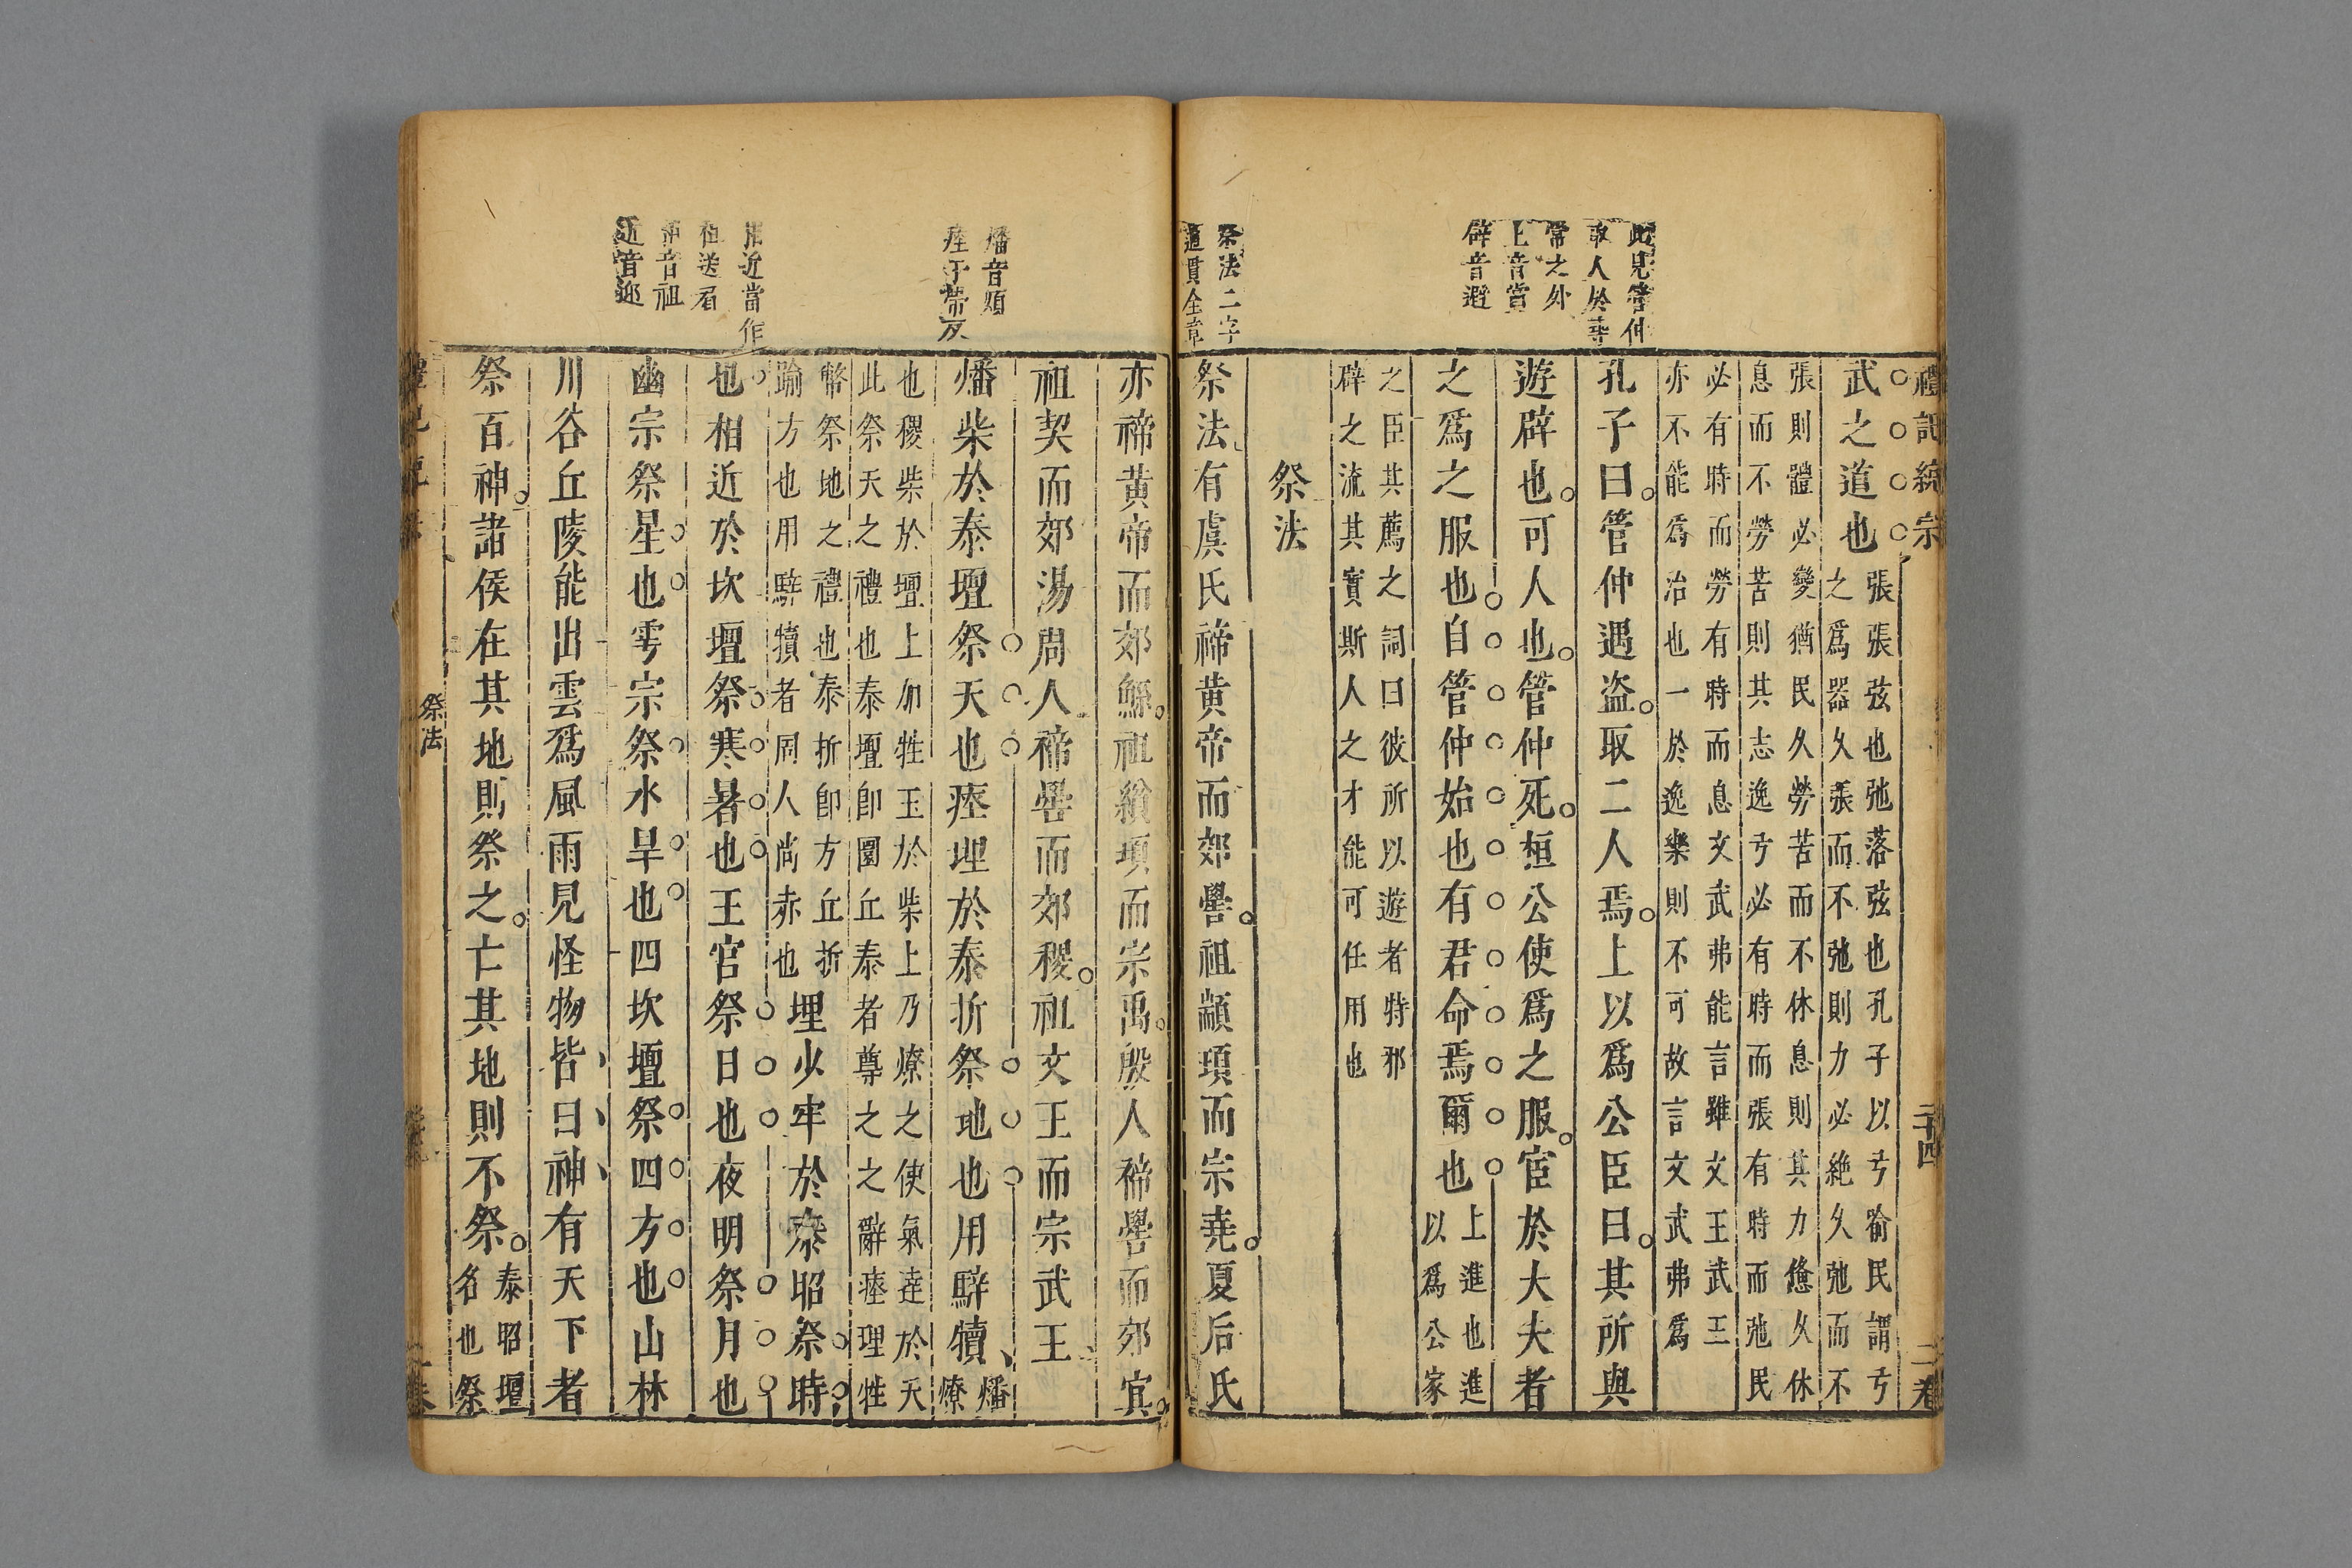 禮記統宗
二十四
二卷
此見管仲
取人於尋
常之外
上音賞
辟音避
祭法二字
道貫全章
武之道也張張弦也弛落弦也孔子以亏喻民謂亏
之爲器久張而不弛則力必絶久弛而不
張則體必變猶民久勞苦而不休息則其力憊久休
息而不勞苦則其志逸亏必有時而張有時而弛民
必有時而勞有時而息文武弗能言雖文王武王
亦不能爲治也一於逸樂則不可故言文武弗爲
孔子曰管仲遇盗取二人焉上以爲公臣曰其所與
遊辟也可人也管仲死桓公使爲之服宦於大夫者
之爲之服也自管仲始也有君命焉爾也上進也進
以爲公家
之臣其薦之詞曰彼所以遊者特邪
辟之流其實斯人之才能可任用也
祭法
祭法有虞氏禘黄帝而郊嚳祖顓頊而宗堯夏后氏
亦禘黄帝而郊鯀祖顓頊而宗禹殷人禘嚳而郊冥
祖契而郊湯周人禘嚳而郊稷祖文王而宗武王
燔音煩
瘞于滯反
燔柴於泰壇祭天也瘞埋於泰折祭地也用騂犢燔
燎
也稷柴於壇上加牲玉於柴上乃燎之使氣達於天
此祭天之禮也泰壇卽圜丘泰者尊之之辭瘞理牲
幣祭地之禮也泰折卽方丘折
踰方也用騂犢者周人尚赤也
埋少牢於泰昭祭時
相近當作
祖送君
神音祖
近音迎
也相近於坎壇祭寒暑也王官祭日也夜明祭月也
幽宗祭星也雩宗祭水旱也四坎壇祭四方也山林
川谷丘陵能出雲爲風雨見怪物皆曰神有天下者
祭百神諸侯在其地則祭之亡其地則不祭泰昭壇
名也祭
祭法